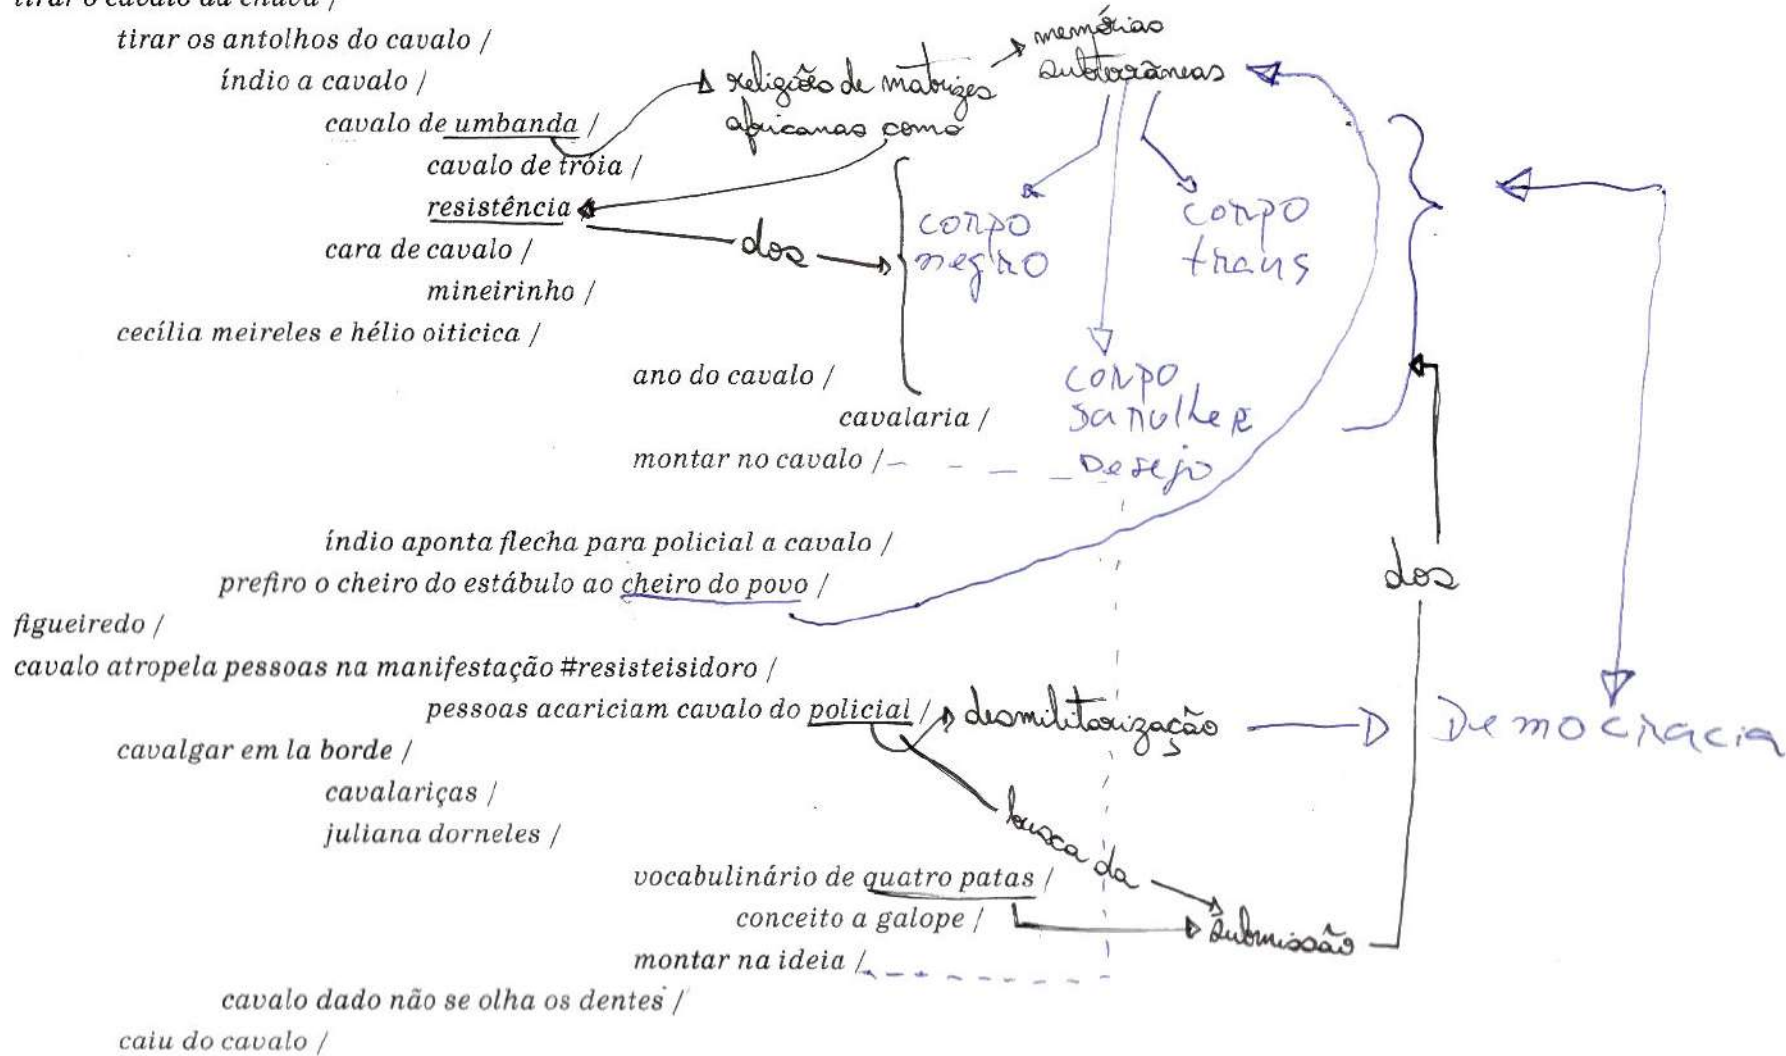 tirar o cavalo da chuva /
tirar os antolhos do cavalo /
índio a cavalo /
cavalo de umbanda /
cavalo de tróia /
resistência
cara de cavalo /
mineirinho /
cecília meireles e hélio oiticica /
ano do cavalo /
cavalaria /
montar no cavalo /
índio aponta flecha para policial a cavalo /
prefiro o cheiro do estábulo ao cheiro do povo /
figueiredo /
cavalo atropela pessoas na manifestação #resisteisidoro /
pessoas acariciam cavalo do policial /
cavalgar em la borde /
cavalariças /
juliana dorneles /
vocabulinário de quatro patas /
conceito a galope /
montar na ideia /
cavalo dado não se olha os dentes /
caiu do cavalo /
religiões de matrizes
africanas como
memórias
subterrâneas
dos
corpo
negro
corpo
trans
corpo
Desejo
dos
desmilitarização
Democracia
busca da
submissão